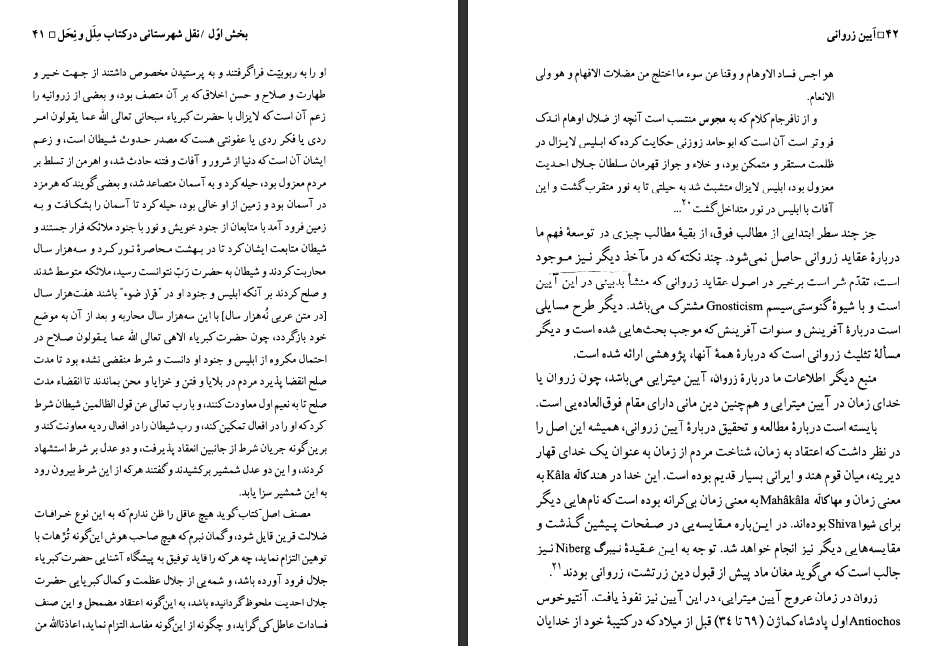 بخش اوّل / نقل شهرستانی در کتاب مِلَل و نِحَل □ ۴۱
او را به ربوبیّت فراگرفتند و به پرستیدن مخصوص داشتند از جهت خیر و
طهارت و صلاح و حسن اخلاق که بر آن متصف بود، و بعضی از زروانیه را
زعم آن است که لایزال با حضرت کبریاء سبحانی تعالی الله عما یقولون امر
ردی یا فکر ردی یا عفونتی هست که مصدر حدوث شیطان است، و زعم
ایشان آن است که دنیا از شرور و آفات و فتنه حادث شد، و اهرمن از تسلط بر
مردم معزول بود، حیله کرد و به آسمان متصاعد شد، و بعضی گویند که هرمزد
در آسمان بود و زمین از او خالی بود، حیله کرد تا آسمان را بشکافت و به
زمین فرود آمد با متابعان از جنود خویش و نور با جنود ملائکه فرار جستند و
شیطان متابعت ایشان کرد تا در بهشت محاصرهٔ نور کرد و سه‌هزار سال
محاربت کردند و شیطان به حضرت رَبّ نتوانست رسید، ملائکه متوسط شدند
و صلح کردند بر آنکه ابلیس و جنود او در "قرار ضوء" باشند هفت‌هزار سال
[در متن عربی نُه‌هزار سال] با این سه‌هزار سال محاربه و بعد از آن به موضع
خود بازگردد، چون حضرت کبریاء الاهی تعالی الله عما یقولون صلاح در
احتمال مکروه از ابلیس و جنود او دانست و شرط منقضی نشده بود تا مدت
صلح انقضا پذیرد مردم در بلایا و فتن و خزایا و محن بماندند تا انقضاء مدت
صلح تا به نعیم اول معاودت کنند، و با رب تعالی عن قول الظالمین شیطان شرط
کرد که او را در افعال تمکین کند، و رب شیطان را در افعال ردیه معاونت کند و
برین‌گونه جریان شرط از جانبین انعقاد پذیرفت، و دو عدل بر شرط استشهاد
کردند، و این دو عدل شمشیر برکشیدند و گفتند هرکه از این شرط بیرون رود
به این شمشیر سزا یابد.
مصنف اصل کتاب گوید هیچ عاقل را ظن ندارم که به این نوع خرافات
ضلالت قرین قایل شود، و گمان نبرم که هیچ صاحب هوش این‌گونه تُرّهات با
توهین التزام نماید، چه هرکه را قاید توفیق به پیشگاه آشنایی حضرت کبریاء
جلال فرود آورده باشد، و شمه‌یی از جلال عظمت و کمال کبریایی حضرت
جلال احدیت ملحوظ گردانیده باشد، به این‌گونه اعتقاد مضمحل و این صنف
فسادات عاطل کی گراید، و چگونه از این‌گونه مفاسد التزام نماید، اعاذنا‌الله من
۴۲ □ آیین زروانی
هو اجس فساد الاوهام و وقنا عن سوء ما اختلج من مضلات الافهام و هو ولی
الانعام.
و از نافرجام کلام که به مجوس منتسب است آنچه از ضلال اوهام اندک
فروتر است آن است که ابوحامد زوزنی حکایت کرده که ابلیس لایزال در
ظلمت مستقر و متمکن بود، و خلاء و جواز قهرمان سلطان جلال احدیت
معزول بود، ابلیس لایزال متشبث شد به حیلتی تا به نور متقرب گشت و این
آفات با ابلیس در نور متداخل گشت۲۰...
جز چند سطر ابتدایی از مطالب فوق، از بقیهٔ مطالب چیزی در توسعهٔ فهم ما
دربارهٔ عقاید زروانی حاصل نمی‌شود. چند نکته که در مآخذ دیگر نیز موجود
است، تقدّم شر است برخیر در اصول عقاید زروانی که منشأ بدبینی در این آیین
است و با شیوهٔ گنوستی‌سیسم Gnosticism مشترک می‌باشد. دیگر طرح مسایلی
است دربارهٔ آفرینش و سنوات آفرینش که موجب بحث‌هایی شده است و دیگر
مسألهٔ تثلیث زروانی است که دربارهٔ همهٔ آنها، پژوهشی ارائه شده است.
منبع دیگر اطلاعات ما دربارهٔ زروان، آیین میترایی می‌باشد، چون زروان یا
خدای زمان در آیین میترایی و هم‌چنین دین مانی دارای مقام فوق‌العاده‌یی است.
بایسته است دربارهٔ مطالعه و تحقیق دربارهٔ آیین زروانی، همیشه این اصل را
در نظر داشت که اعتقاد به زمان، شناخت مردم از زمان به عنوان یک خدای قهار
دیرینه، میان قوم هند و ایرانی بسیار قدیم بوده است. این خدا در هند کاله Kâla به
معنی زمان و مهاکاله Mahâkâla به معنی زمان بی‌کرانه بوده است که نام‌هایی دیگر
برای شیوا Shiva بوده‌اند. در این‌باره مقایسه‌یی در صفحات پیشین گذشت و
مقایسه‌هایی دیگر نیز انجام خواهد شد. توجه به این عقیدهٔ نیبرگ Niberg نیز
جالب است که می‌گوید مغان ماد پیش از قبول دین زرتشت، زروانی بودند۲۱.
زروان در زمان عروج آیین میترایی، در این آیین نیز نفوذ یافت. آنتیوخوس
Antiochos اول پادشاه کماژن (۶۹ تا ۳۴) قبل از میلاد که در کتیبهٔ خود از خدایان